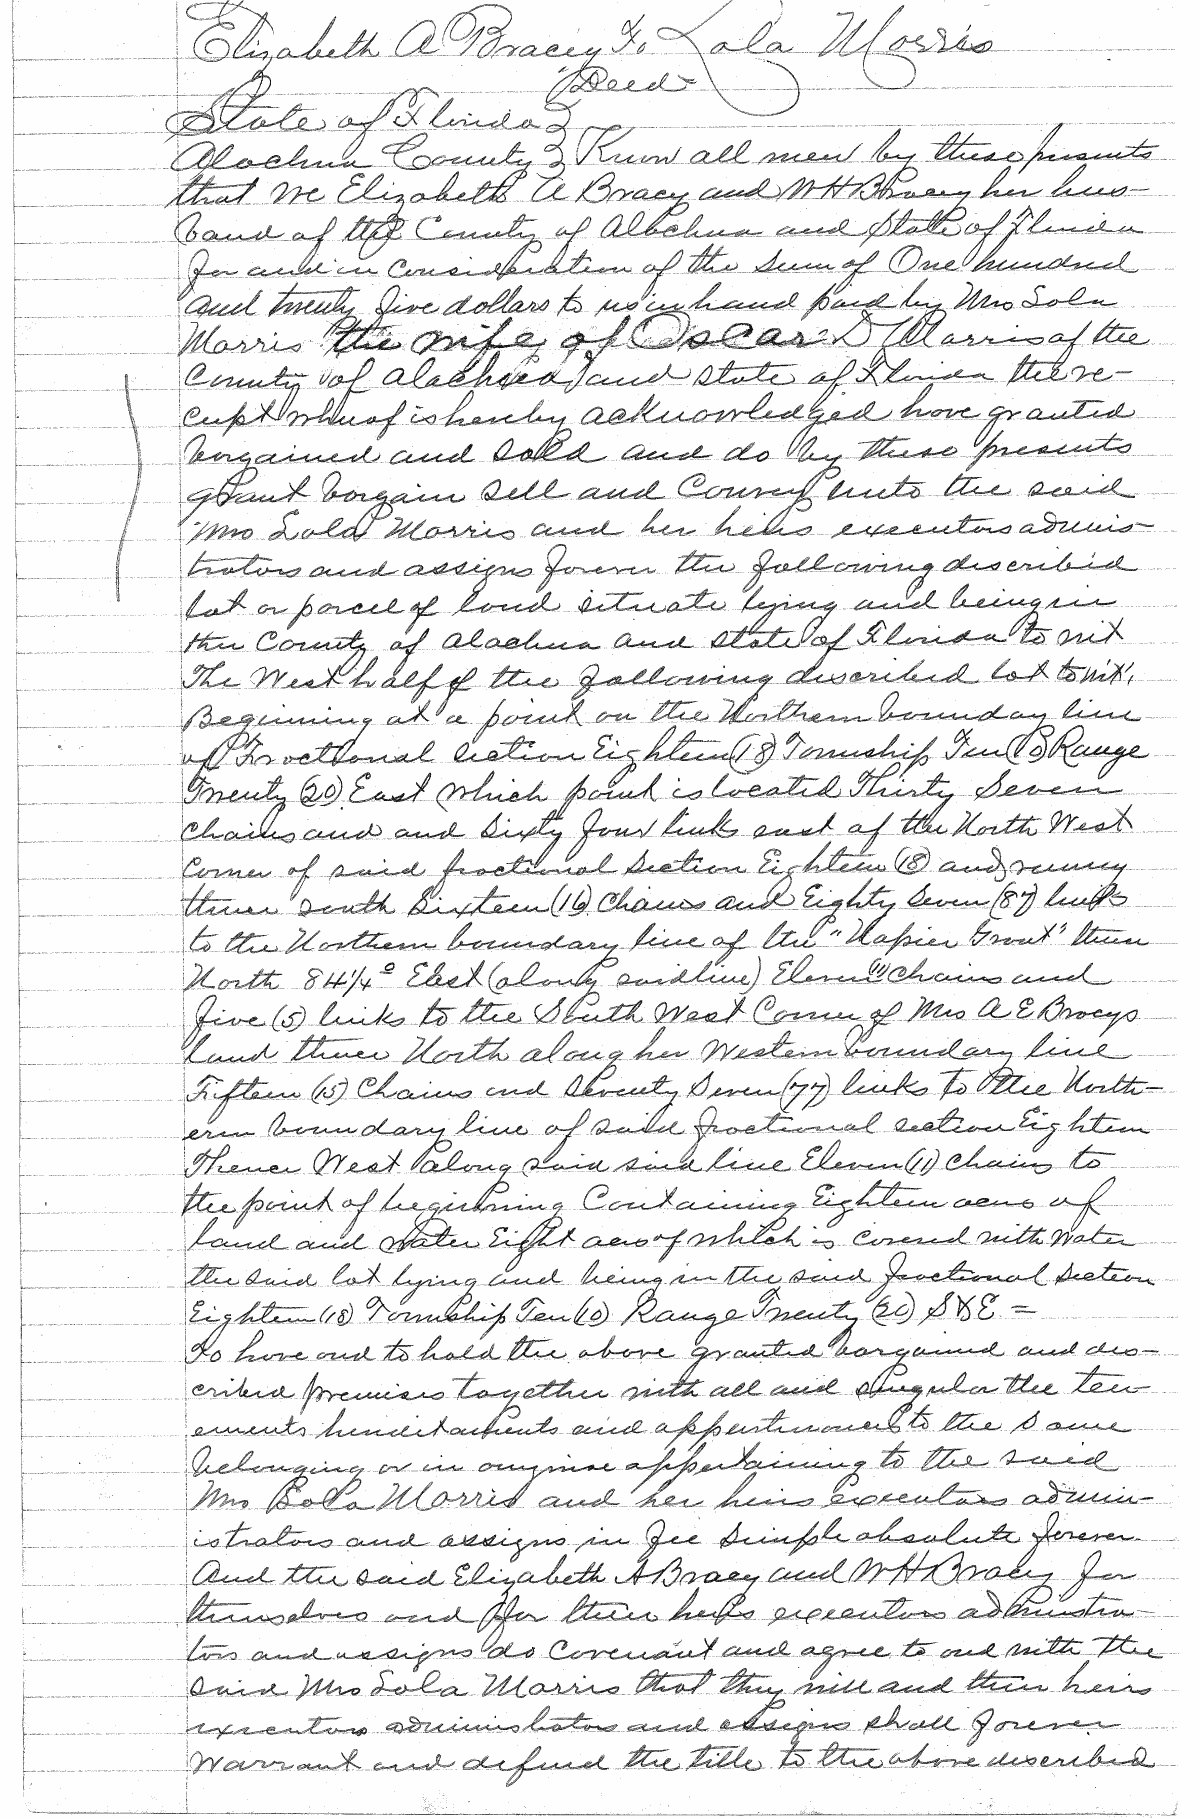 Elizabeth A Bracey To Lola Morris
Deed
State of Florida }
Alachua County } Know all men by these presents
that We Elizabeth A Bracy and W H Bracey her hus-
band of the County of Alachua and State of Florida
for and in consideration of the sum of One hundred
and twenty five dollars to us in hand paid by Mrs Lola
Morris the wife of Oscar D Morris of the
County of Alachua and State of Florida the re-
ceipt whereof is hereby acknowledged have granted
bargained and sold and do by these presents
grant bargain sell and Convey unto the said
Mrs Lola Morris and her heirs executors adminis-
trators and assigns forever the following described
lot or parcel of land situate lying and being in
the County of Alachua and State of Florida to wit
The West half of the following described lot to wit,
Beginning at a point on the Northern bounday line
of Fractional Section Eighteen (18) Township Ten (10) Range
Twenty (20) East which point is located Thirty Seven
chains and and Sixty four links east of the North West
Corner of said fractional Section Eighteen (18) and
thence south Sixteen (16) Chains and Eighty Seven (87) links
to the Northern boundary line of the "Napier Grant" thence
North 84 1/4° East (along said line) Eleven (11) Chains and
five (5) links to the South West Corner of Mrs A E Bracys
land thence North along her Western boundary line
Fifteen (15) Chains and Seventy Seven (77) links to the North-
ern boundary line of said fractional section Eighteen
Thence West along said said line Eleven (11) chains to
the point of beginning Containing Eighteen acres of
land and water Eight acres of which is covered with water
the said lot lying and being in the said fractional section
Eighteen (18) Township Ten (10) Range Twenty (20) S & E =
To have and to hold the above granted bargained and des-
cribed premises together with all and singular the ten-
ements hereditaments and appurtenances to the same
belonging or in anywise appertaining to the said
Mrs Lola Morris and her heirs executors admin-
istrators and assigns in fee simple absolute forever
And the said Elizabeth A Bracy and W H Bracey for
themselves and for their heirs executors administra-
tors and assigns do covenant and agree to and with the
said Mrs Lola Morris that they will and their heirs
executors administrators and assigns shall forever
Warrant and defend the title to the above described